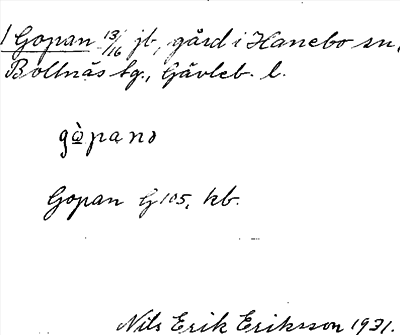 1 Gopan 13/16 jb, gård i Hanebo sn,
Bollnäs tg., Gävleb. l.
gὼpanɔ
Gopan G 105, kb.
Nils Erik Eriksson 1931.